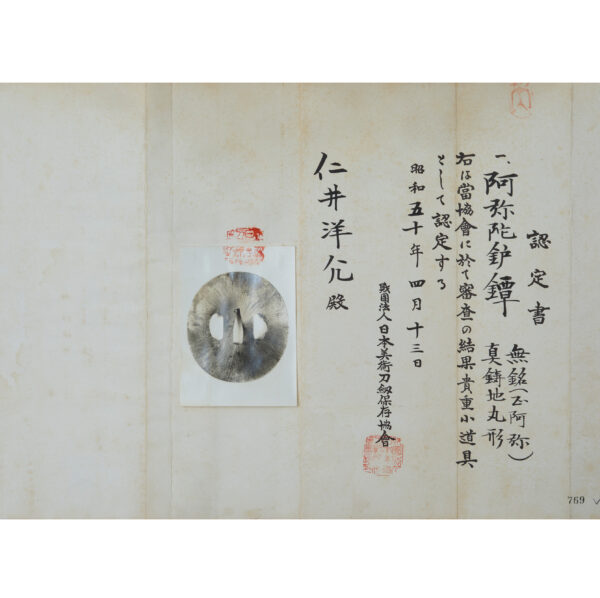 認定書
一、阿弥陀鈩鐔 無銘(正阿弥)
真鍮地丸形
右は當協會に於て審査の結果貴重小道具
として認定する
昭和五十年四月十三日
財団法人日本美術刀剣保存協會
仁井洋允殿
769